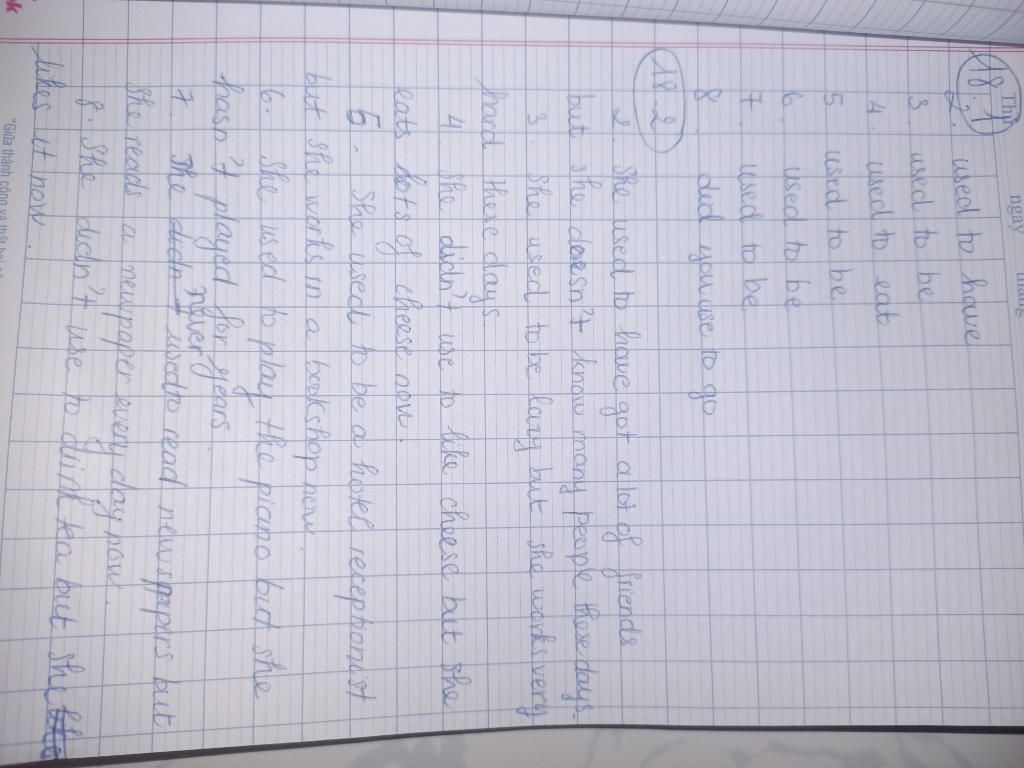 Thứ ngày tháng
18.1
2. used to have
3. used to be
4. used to eat
5 used to be
6. used to be
7. used to be
8 did you use to go
18.2
2. She used to have got a lot of friends
but she doesn't know many people these days.
3. She used to be lazy but she works very
hard these days.
4. She didn't use to like cheese but she
eats lots of cheese now.
5. She used to be a hotel receptionist
but she works in a bookshop now
6. She used to play the piano but she
hasn't played for years
never
7. She didn used to read newspapers but
She reads a newpaper every day now.
8. She didn't use to drink tea but she
likes it now.
"Giữa thành công và thất bại